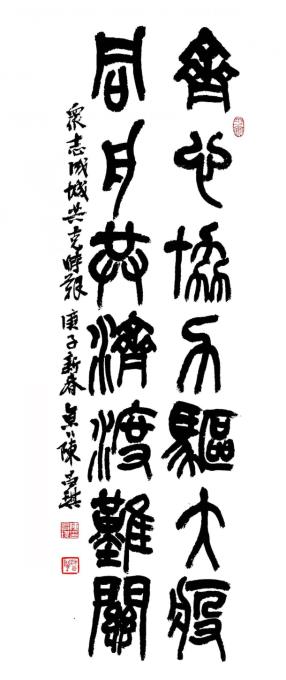 齊心協力驅大疫
同舟共濟渡難關
衆志成城共克時艱 庚子新春 陳